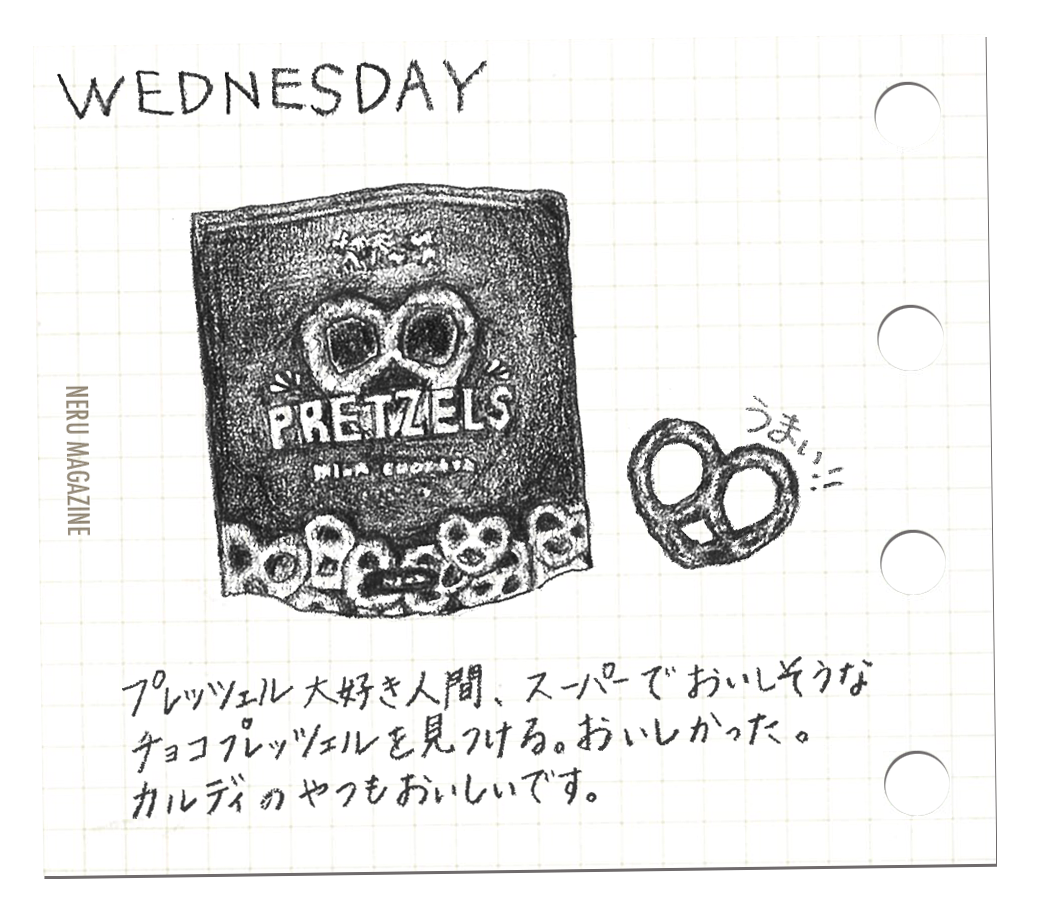 WEDNESDAY
PRETZELS
うまい!!
NERU MAGAZINE
プレッツェル大好き人間、スーパーでおいしそうな
チョコプレッツェルを見つける。おいしかった。
カルディのやつもおいしいです。